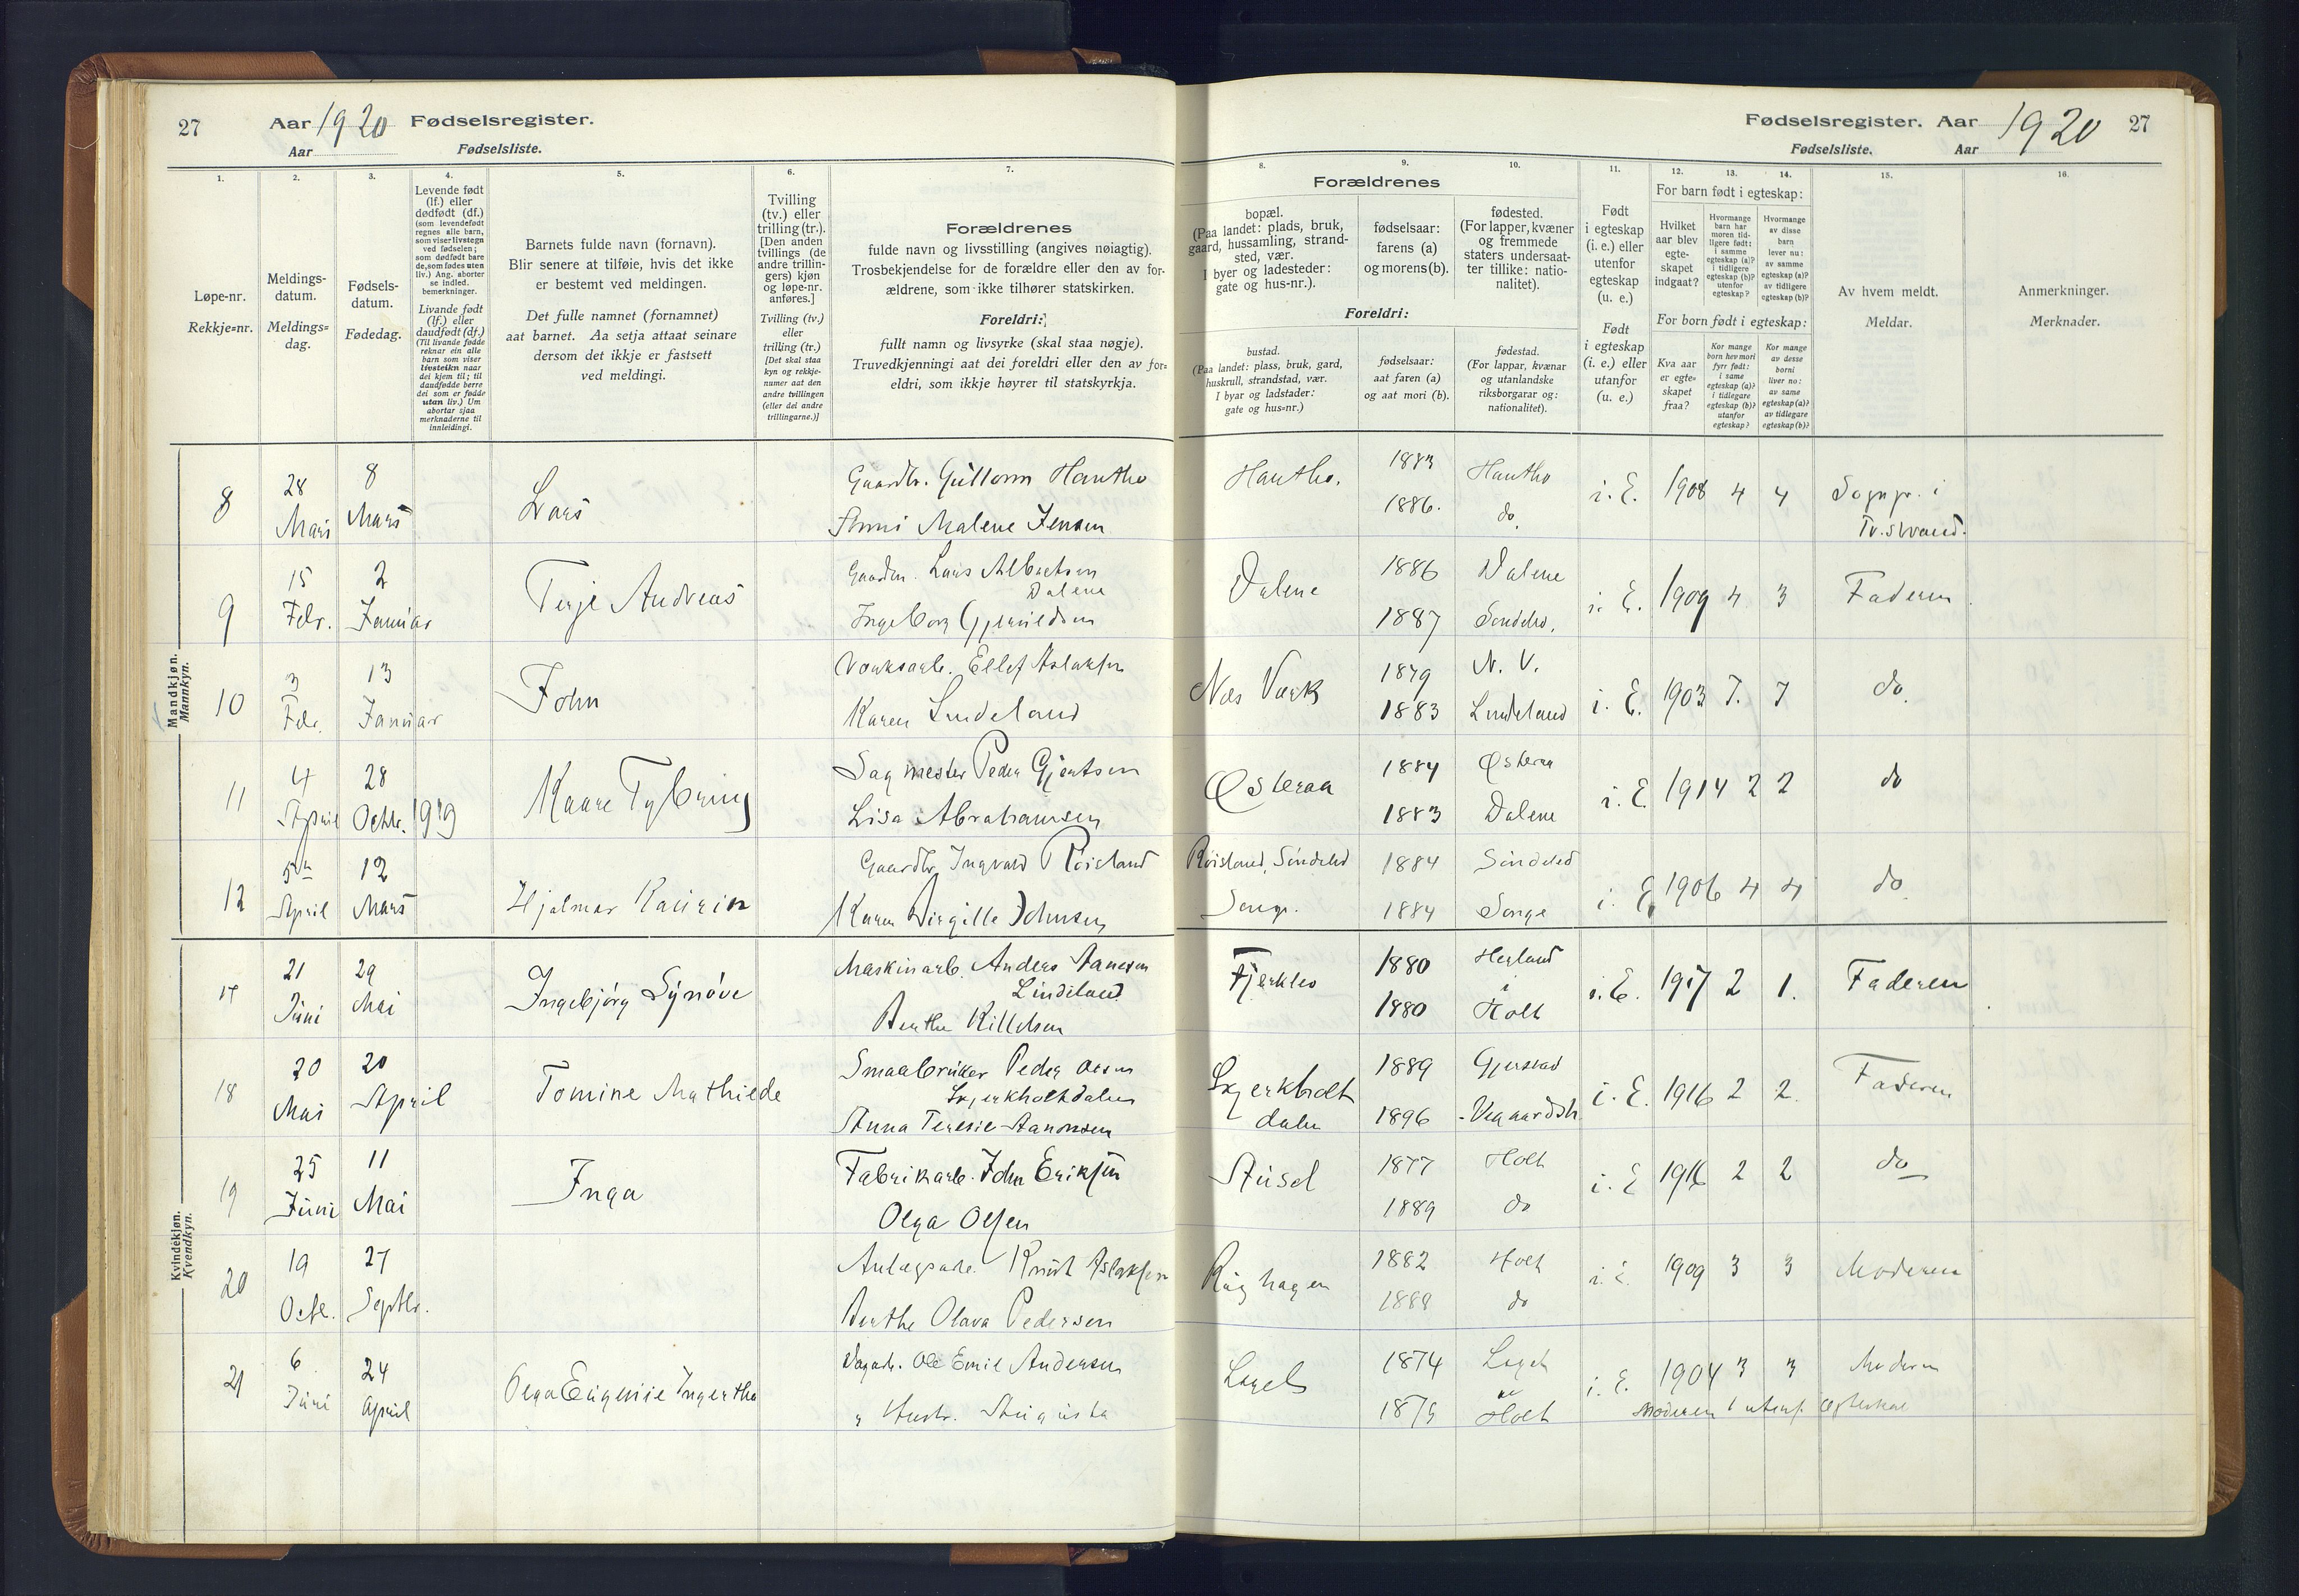 27 Aar 1920 Fødselsregister.
Aar Fødselsliste.
1. 2. 3. 4. 5. 6. 7.
Løpe-nr.
Rekkje=nr.
Meldings-
datum.
Meldings=
dag.
Fødsels-
datum.
Fødedag.
Levende født
(lf.) eller
dødfødt (df.)
(som levendefødt
regnes alle barn,
som viser livstegn
ved fødselen;
som dødfødt bare
de, som fødes uten
liv.) Ang. aborter
se indled.
bemerkninger.
Livande født
(lf.) eller
daudfødt (df.)
(Til livande fødde
reknar ein alle
barn som viser
livsteikn naar
dei kjem til; til
daudfødde berre
dei som er fødde
utan liv.) Um
abortar sjaa
merknaderne til
innleidingi.
Barnets fulde navn (fornavn).
Blir senere at tilføie, hvis det ikke
er bestemt ved meldingen.
Det fulle namnet (fornamnet)
aat barnet. Aa setja attaat seinare
dersom det ikkje er fastsett
ved meldingi.
Tvilling
(tv.) eller
trilling (tr.).
[Den anden
tvillings (de
andre trillin-
gers) kjøn
og løpe-nr.
anføres.]
Tvilling (tv.)
eller
trilling (tr.)
[Det skal staa
kyn og rekkje-
numer aat den
andre tvillingen
(eller dei andre
trillingarne.)]
Forældrenes
fulde navn og livsstilling (angives nøiagtig).
Trosbekjendelse for de forældre eller den av for-
ældrene, som ikke tilhører statskirken.
Foreldri:
fullt namn og livsyrke (skal staa nøgje).
Truvedkjenningi aat dei foreldri eller den av for-
eldri, som ikkje høyrer til statskyrkja.
Mandkjøn.
Mannkyn.
8 28 Mars 8 Mars Lars
Gaardbr. Guttorm Hantho
Anni Malene Jensen
9 15 Febr. 2 Januar Terje Andreas
Gaardbr. Lars Albretsen
Dalene
Ingeborg
10 3 Febr. 13 Januar John
Ellef Aslaksen
Karen Lindeland
11 4 April 28 Octbr. 1919 Kaare Tybring
Sagmester Peder Gjertsen
Lisa Abrahamsen
12 5 April 12 Mars Hjalmar Kaurin
Gaardbr. Ingvald Röisland
Karen Birgitte Johnsen
Kvindekjøn.
Kvendkyn.
17 21 Juni 29 Mai Ingebjörg Synöve
Maskinarb. Anders Aanesen
Lindeland
Berthe Killelsen
18 20 Mai 20 April Tomine Mathilde
Smaabruker Peder Olsen
Skjerkholtdalen
Anna Teresie Aanonsen
19 25 Juni 11 Mai Inga
Fabrikarb. John Eriksen
Olga Olsen
20 19 Octb. 27 Septbr.
Knut Aslaksen
Berthe Olava Pedersen
21 6 Juni 24 April Olga Eugenie Ingertha
Dagarb. Ole Emil Andersen
" Hustr. Augusta
Fødselsregister. Aar 1920 27
Fødselsliste. Aar
8. 9. 10. 11. 12. 13. 14. 15. 16.
Forældrenes
bopæl.
(Paa landet: plads, bruk,
gaard, hussamling, strand-
sted, vær.
I byer og ladesteder:
gate og hus-nr.).
fødselsaar:
farens (a)
og morens (b).
fødested.
(For lapper, kvæner
og fremmede
staters undersaat-
ter tillike: natio-
nalitet).
Foreldri:
bustad.
(Paa landet: plass, bruk, gard,
huskrull, strandstad, vær.
I byar og ladstader:
gate og hus=nr.)
fødselsaar:
aat faren (a)
og aat mori (b).
fødestad.
(For lappar, kvænar
og utanlandske
riksborgarar og:
nationalitet).
Født
i egteskap
(i. e.) eller
utenfor
egteskap
(u. e.)
Født
i egteskap
(i. e.) eller
utanfor
(u. e.)
For barn født i egteskap:
Hvilket
aar blev
egte-
skapet
indgaat?
Hvormange
barn har
moren tid-
ligere født:
i samme
egteskap (a)?
i tidligere
egteskap (b)?
utenfor
egteskap?
Hvormange
av disse
barn
lever nu:
av samme
egteskap (a)?
av tidligere
egteskap (b)?
For born født i egteskap:
Kva aar
er egte=
skapet
fraa?
Kor mange
born hev mori
fyrr født:
i same
egteskap (a)?
i tidlegare
egteskap (b)?
utanfor
egteskap?
Kor mange
av desse
borni
liver no:
av same
egteskap (a)?
av tidlegare
egteskap (b)?
Av hvem meldt.
Meldar.
Anmerkninger.
Merknader.
Hantho. 1883 Hantho i. E. 1908 4 4 Sognpr. i
1886. do. Tv.strand.
Dalene 1886 Dalene i. E. 1909 4 3 Faderen
1887 Söndeled.
Næs Værk 1879 N. V. i. E. 1903 7. 7 do.
1883 Lindeland
Østeraa 1884 Østeraa i. E. 1914 2 2 do
1883 Dalene
Röisland, Söndeled 1884 Söndeled i. E. 1906 4 4 do
Songe. 1884 Songe
Fjerkleo 1880 Herland i. E. 1917 2 1. Faderen
1880 i Holt
Skjerkholt 1889 Gjerstad i. E. 1916 2 2. Faderen
dalen 1896 Vegaardsh.
Stusel 1877 Holt i. E 1916 2 2 do
1889 do
Rughagen 1882 Holt i. E. 1909 3 3 Moderen
1889 do
1874 i. E. 1904 3 3 Moderen
1875 Holt Moderen 1 utenf. egteskap